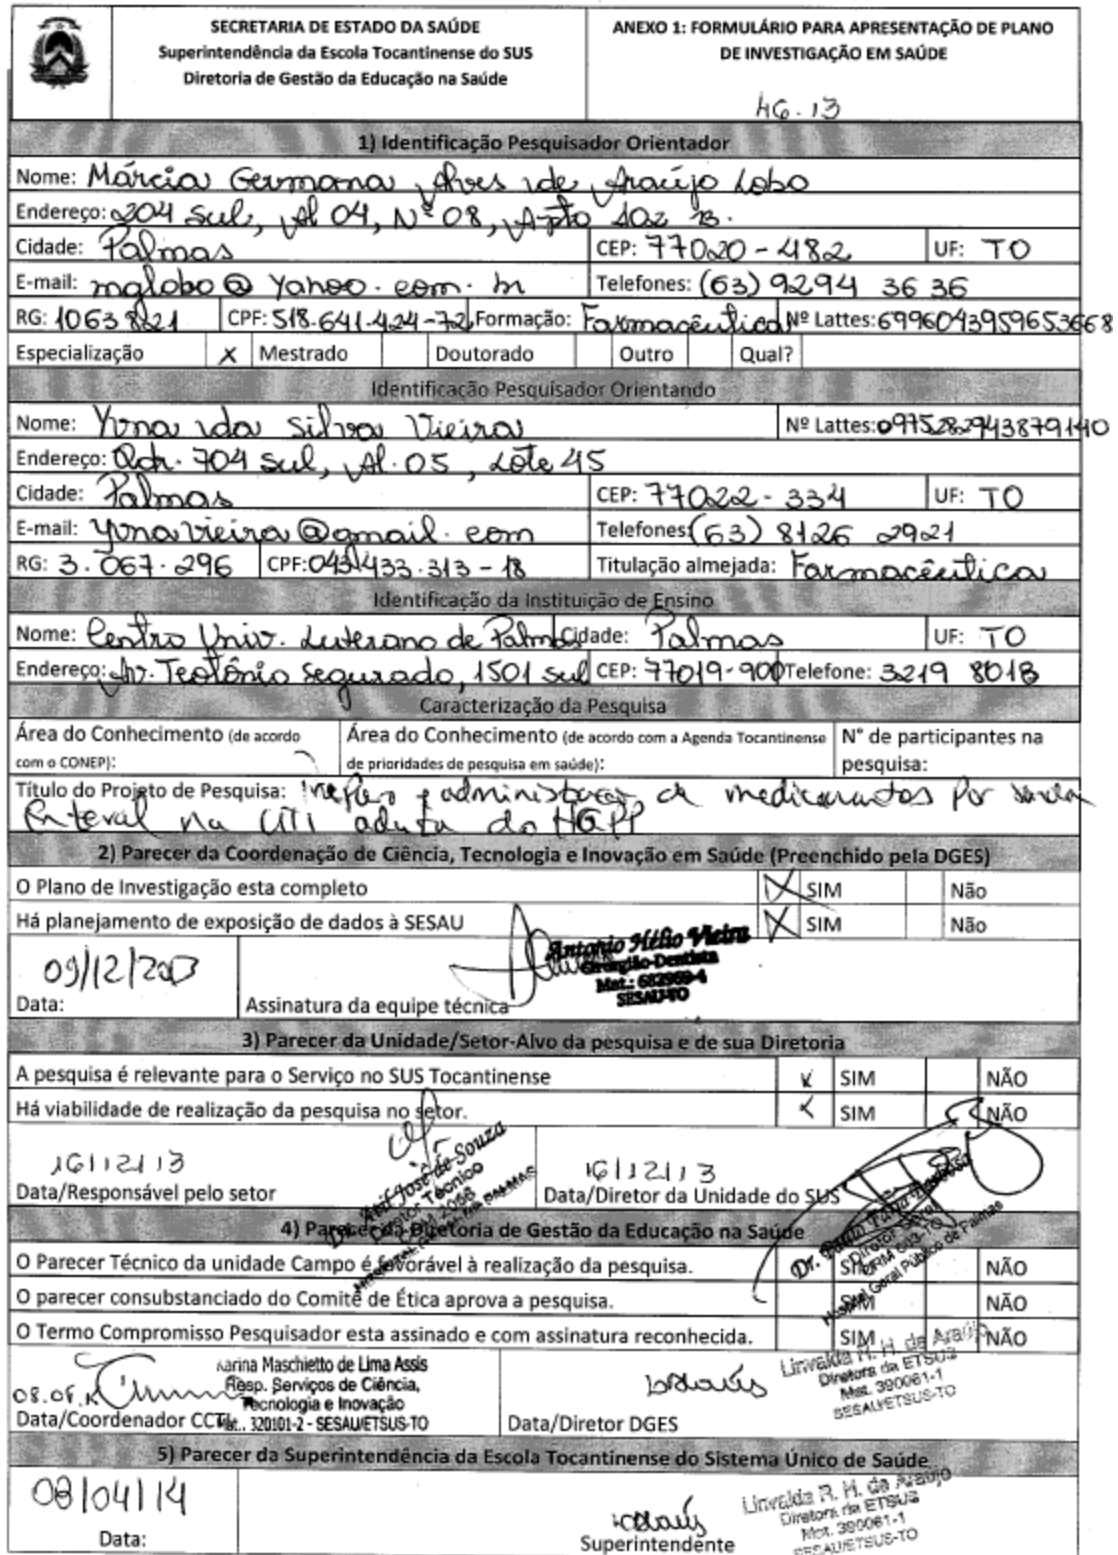 SECRETARIA DE ESTADO DA SAÚDE
Superintendência da Escola Tocantinense do SUS
Diretoria de Gestão da Educação na Saúde
ANEXO 1: FORMULÁRIO PARA APRESENTAÇÃO DE PLANO
DE INVESTIGAÇÃO EM SAÚDE
46.13
1) Identificação Pesquisador Orientador
Nome: Márcia Germana Alves de Araújo Lobo
Endereço: 204 Sul, Al 04, Nº 08, Apto 102 B.
Cidade: Palmas CEP: 77020-482 UF: TO
E-mail: mglobo@yahoo.com.br Telefones: (63) 9294 3636
RG: 1063821 CPF: 518.641.424-72 Formação: Farmacêutica Nº Lattes: 6996043959653668
Especialização X Mestrado Doutorado Outro Qual?
Identificação Pesquisador Orientando
Nome: Yona da Silva Vieira Nº Lattes: 0975282943879140
Endereço: Qdr. 704 Sul, Al. 05, Lote 45
Cidade: Palmas CEP: 77022-334 UF: TO
E-mail: yonavieira@gmail.com Telefones: (63) 8126 2921
RG: 3.067.296 CPF: 043.433.313-18 Titulação almejada: Farmacêutica
Identificação da Instituição de Ensino
Nome: Centro Univ. Luterano de Palmas Cidade: Palmas UF: TO
Endereço: Av. Teotônio Segurado, 1501 sul CEP: 77019-900 Telefone: 3219 8018
Caracterização da Pesquisa
Área do Conhecimento (de acordo com o CONEP): Área do Conhecimento (de acordo com a Agenda Tocantinense de prioridades de pesquisa em saúde): N° de participantes na pesquisa:
Título do Projeto de Pesquisa: administração de medicamentos por sonda
Enteral na UTI adulta do HGPP
2) Parecer da Coordenação de Ciência, Tecnologia e Inovação em Saúde (Preenchido pela DGES)
O Plano de Investigação esta completo X SIM Não
Há planejamento de exposição de dados à SESAU X SIM Não
09/12/2013
Antonio Hélio Vieira
Cirurgião-Dentista
Mat.: 682969-4
SESAU-TO
Data: Assinatura da equipe técnica
3) Parecer da Unidade/Setor-Alvo da pesquisa e de sua Diretoria
A pesquisa é relevante para o Serviço no SUS Tocantinense x SIM NÃO
Há viabilidade de realização da pesquisa no setor. x SIM NÃO
16/12/13 16/12/13
José de Souza
Diretor Técnico
Data/Responsável pelo setor Data/Diretor da Unidade do SUS
Diretor Geral
Hospital Geral Público de Palmas
4) Parecer da Diretoria de Gestão da Educação na Saúde
O Parecer Técnico da unidade Campo é favorável à realização da pesquisa. SIM NÃO
O parecer consubstanciado do Comitê de Ética aprova a pesquisa. SIM NÃO
O Termo Compromisso Pesquisador esta assinado e com assinatura reconhecida. SIM NÃO
Karina Maschietto de Lima Assis
Resp. Serviços de Ciência,
Tecnologia e Inovação
Mat.. 320101-2 - SESAU/ETSUS-TO
Data/Coordenador CCTI Data/Diretor DGES
Linvalda R. H. de Araújo
Diretora da ETSUS
Mat. 390061-1
SESAU/ETSUS-TO
5) Parecer da Superintendência da Escola Tocantinense do Sistema Único de Saúde
08/04/14
Data: Superintendente
Linvalda R. H. de Araújo
Diretora da ETSUS
Mat. 390061-1
SESAU/ETSUS-TO